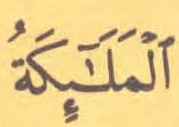 اَلْمَلَـٰٓئِكَةُ